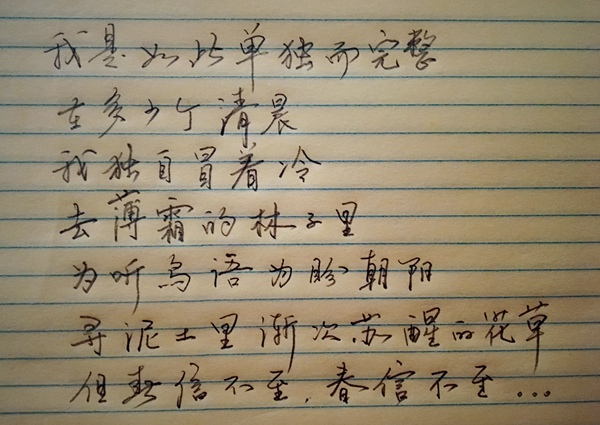 我是如此单独而完整
在多少个清晨
我独自冒着冷
去薄霜的林子里
为听鸟语为盼朝阳
寻泥土里渐次苏醒的花草
但春信不至,春信不至...